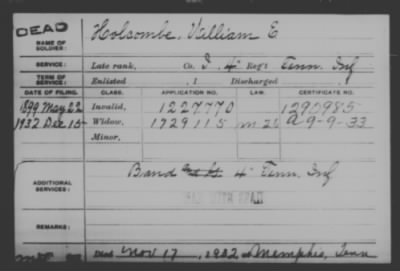 DEAD
NAME OF SOLDIER: Holcombe, William E
SERVICE: Late rank, Co. I, 4" Reg't Tenn. Inf
TERM OF SERVICE: Enlisted , 1 Discharged , 1
DATE OF FILING. CLASS. APPLICATION NO. LAW. CERTIFICATE NO.
1899 May 22 Invalid, 1227770 1290985
1932 Dec 15 Widow, 1729115 A-9-9-33
Minor,
ADDITIONAL SERVICES: Band 4" Tenn. Inf
WAR WITH SPAIN
REMARKS:
Died Nov 17, 1932 Memphis, Tenn